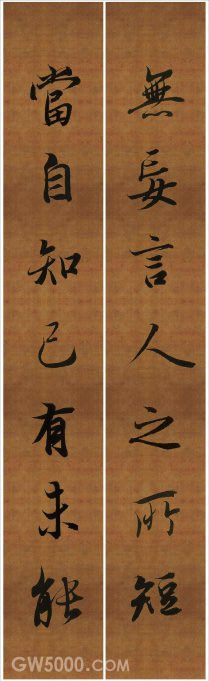 無妄言人之所短
當自知己有未能
GW5000.COM